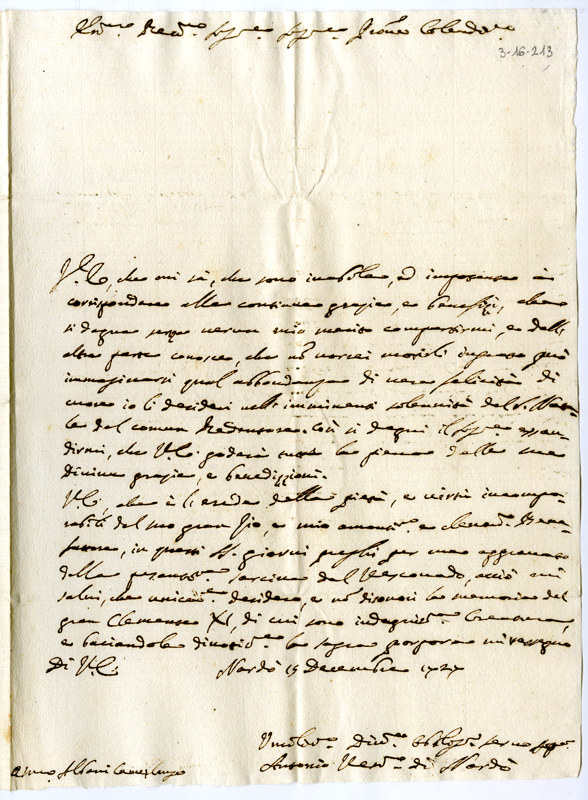 Em.mo Rev.mo Sig.re Sig.re Pron̄e Colend.mo
3-16-213
V. E., che mi sà, che sono inabile, ed impotente à
corrispondere alle continue grazie, e benefizi, che
si degna senza verun mio merito compartirmi, e dall'
altra parte conosce, che nō vorrei morirli ingrato può
immaginarsi qual abbondanza di vera felicità di
cuore io li desideri nell'imminenti solennità del S. Nata-
le del comun Redentore. Così si degni il Sig.re esau-
dirmi, che V. E. goderà la piena delle sue
Divine grazie, e benedizzioni.
V. E., che è l'erede della pietà, e virtù incompa-
rabili del suo gran Zio, e mio amantis.mo e clementis.mo Bene-
fattore, in questi S. giorni preghi per me aggravato
dalla pesantis.ma sarcina del Vescovado, acciò mi
salvi, che unicam.te desidero, e nō disonori la memoria del
gran Clemente XI, di cui sono indegnis.ma Creatura,
e baciandole divotis.te la sagra porpora mi rassegno
Di V. E. Nardò 15 Decembre 1727
Umilis.mo Div.mo Obblig.mo servo
Antonio Vesc.o di Nardò
Em.o Albani Camerlengo